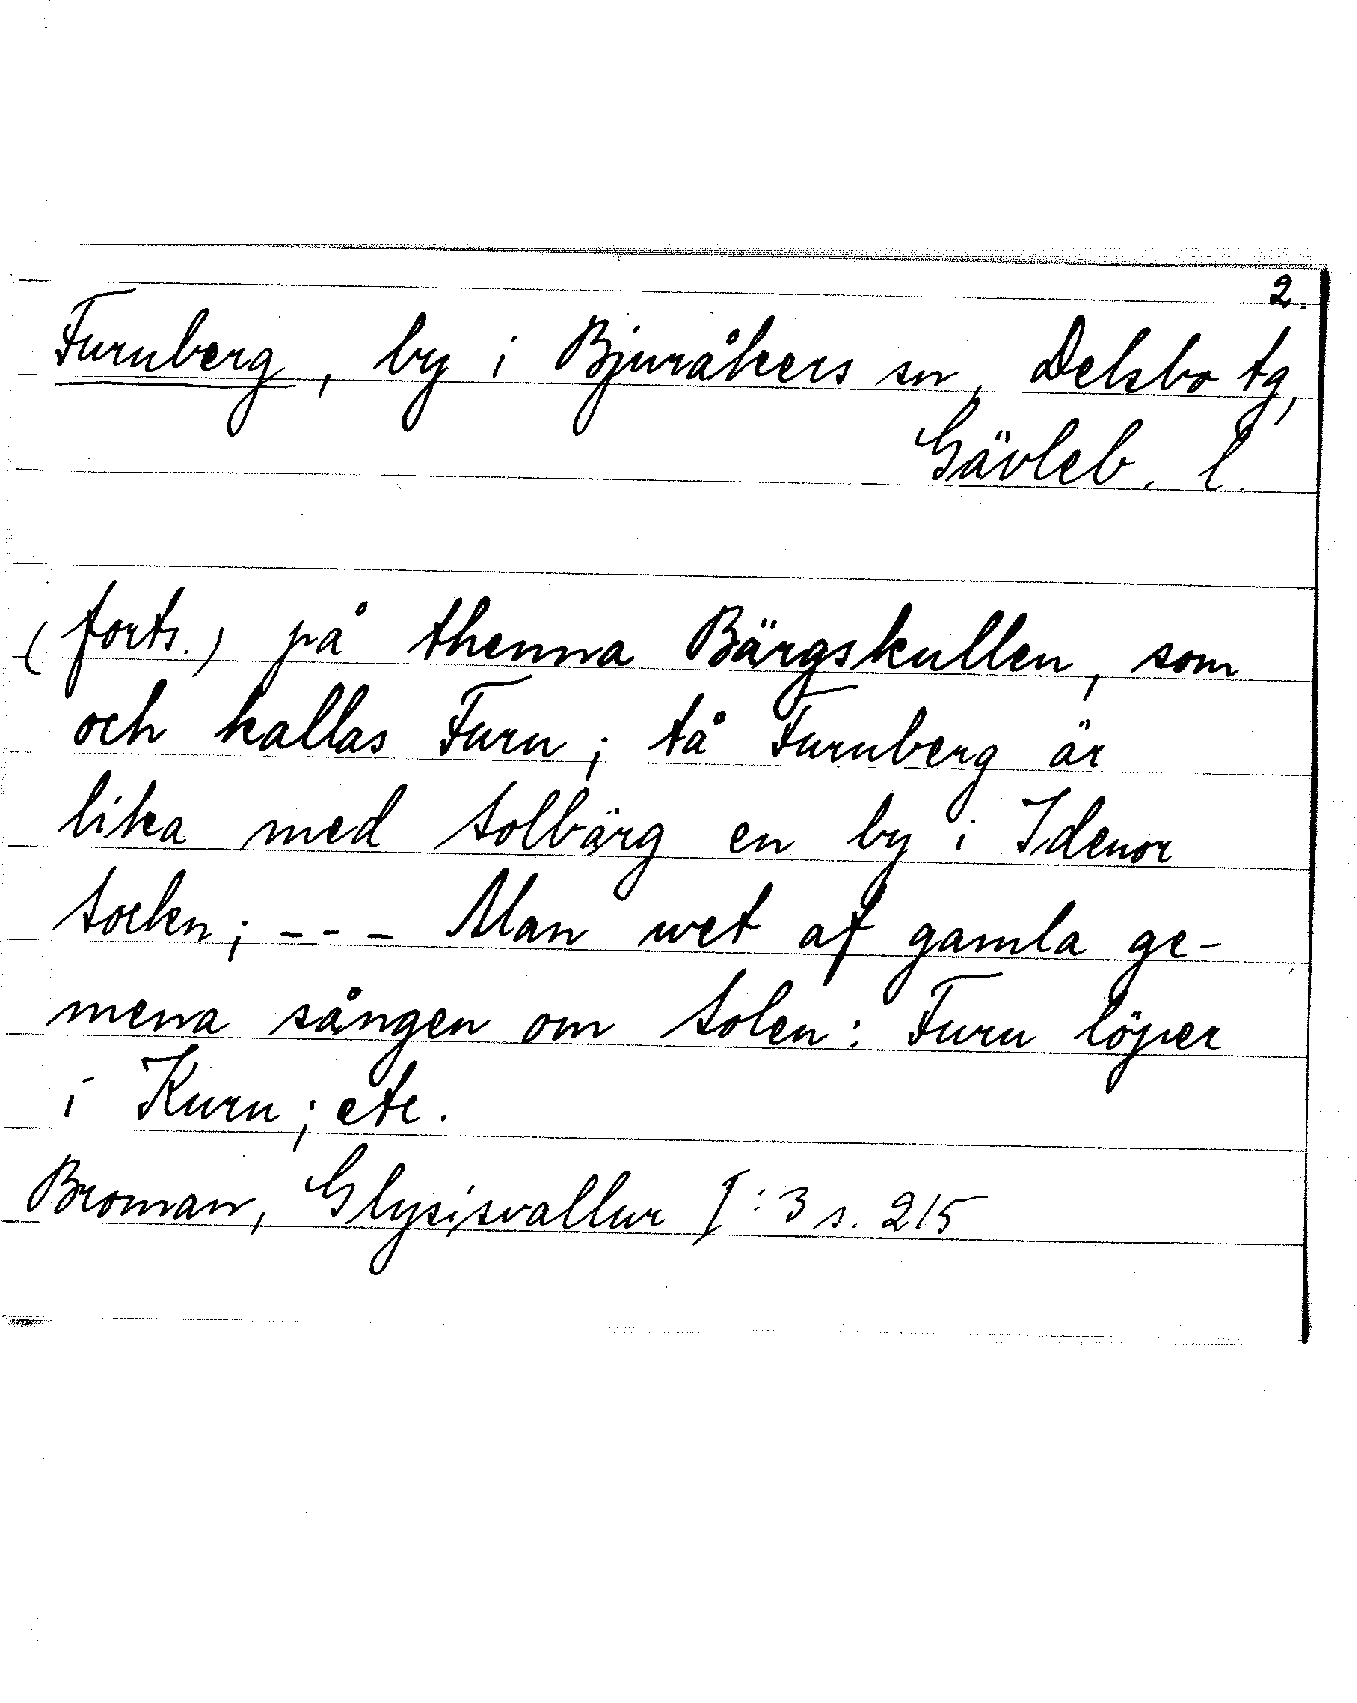 2.
Furuberg, by i Bjuråkers sn, Delsbo tg,
Gävleb. l.
(forts.) på thenna Bärgskullen, som
och kallas Furu; tå Furuberg är
lika med Solbärg en by i Idenor
Socken; - - - Man wet af gamla ge-
mena sången om Solen: Furu löper
i Kuru; etc.
Broman, Glysisvallur I:3 s. 215